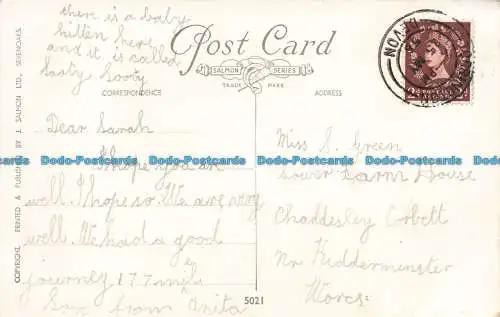 there is a baby
kitten here
and it is called
Sooty Sooty
Post Card
SALMON SERIES
TRADE MARK
CORRESPONDENCE
ADDRESS
Dear Sarah
I hope you are
well. I hope so. We are very
well. We had a good
journey 177 miles
from Anita
Miss S. Green
Lower Farm House
Chaddesley Corbett
Nr Kidderminster
Worcs.
5021
COPYRIGHT. PRINTED & PUBLISHED BY J. SALMON LTD., SEVENOAKS.
DEVON
Dodo-Postcards Dodo-Postcards Dodo-Postcards Dodo-Postcards